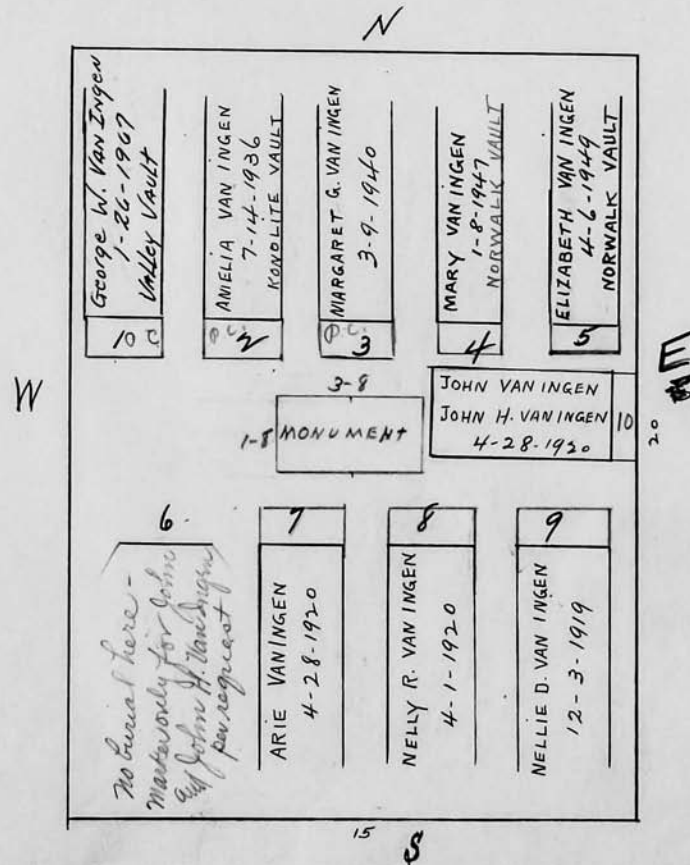 N
George W. Van Ingen
1-26-1967
Valley Vault
10 C
ANIELIA VAN INGEN
7-14-1936
KONOLITE VAULT
P.C. 2
MARGARET G. VAN INGEN
3-9-1940
P.C. 3
MARY VAN INGEN
1-8-1947
NORWALK VAULT
4
ELIZABETH VAN INGEN
4-6-1949
NORWALK VAULT
5
W
E
3-8
1-8 MONUMENT
JOHN VAN INGEN
JOHN H. VAN INGEN
4-28-1920
10
20
6
No burial here -
Marker only for John
and John H. Van Ingen
per request
7
ARIE VAN INGEN
4-28-1920
8
NELLY R. VAN INGEN
4-1-1920
9
NELLIE D. VAN INGEN
12-3-1919
15
S